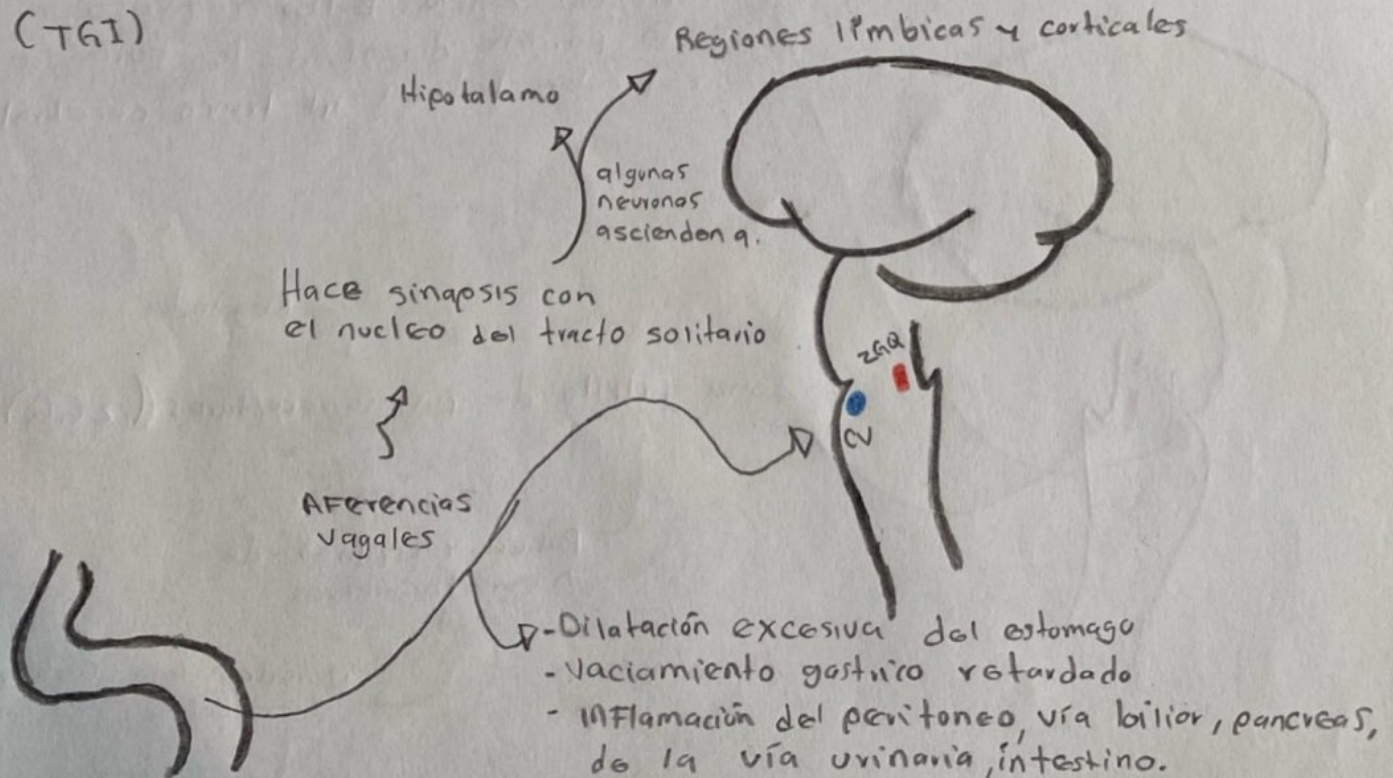 (TGI)
Regiones límbicas y corticales
Hipotalamo
algunas
neuronas
ascienden a.
Hace sinapsis con
el nucleo del tracto solitario
ZGQ
CV
Aferencias
vagales
-Dilatación excesiva del estomago
- vaciamiento gastrico retardado
- Inflamación del peritoneo, vía biliar, pancreas,
de la vía urinaria, intestino.